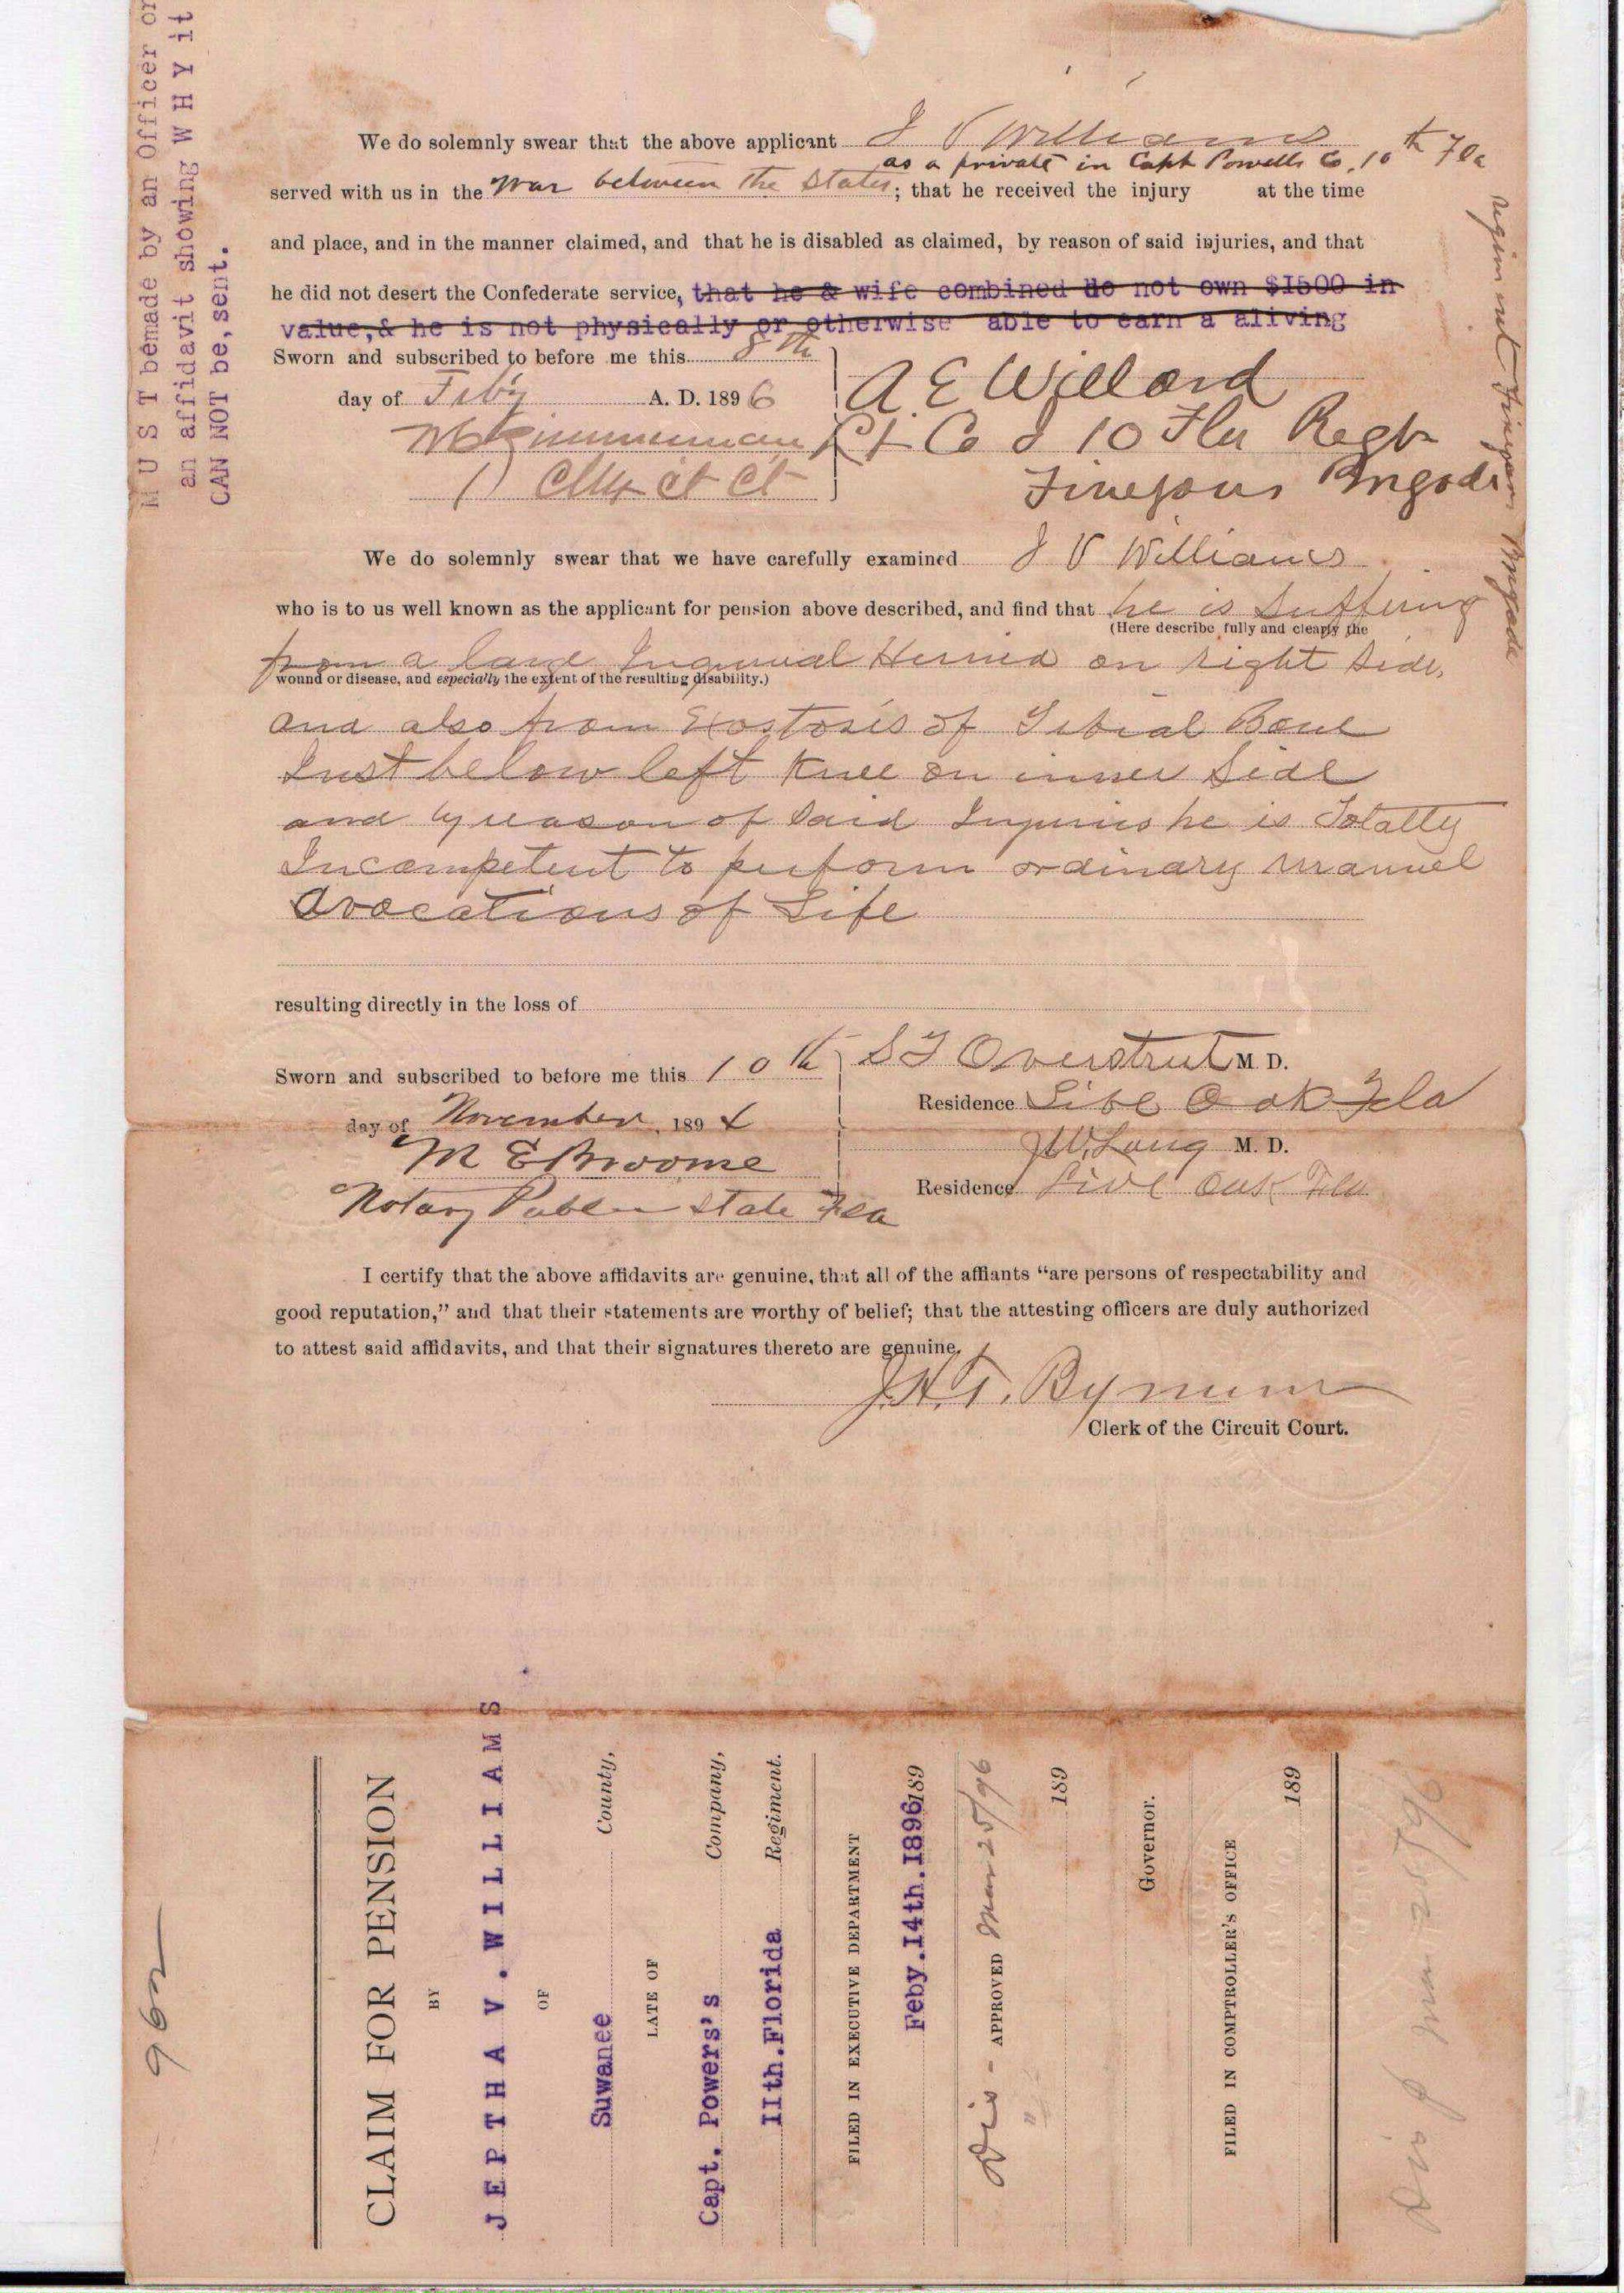 M U S T bemade by an Officer or
an affidavit showing W H Y it
CAN NOT be, sent.
We do solemnly swear that the above applicant J V Williams
as a private in Capt Powells Co, 10th Fla
served with us in the war between the States; that he received the injury at the time
regiment Finegan Brigade
and place, and in the manner claimed, and that he is disabled as claimed, by reason of said injuries, and that
he did not desert the Confederate service, that he & wife combined do not own $I500 in
value,& he is not physically or otherwise able to earn a aliving
Sworn and subscribed to before me this 8th
day of Feby A. D. 1896
A E Willard
Lt Co I 10 Fla Regt
Finegans Brigade
Clk Ct Ct
We do solemnly swear that we have carefully examined J V Williams
who is to us well known as the applicant for pension above described, and find that he is Suffering
(Here describe fully and clearly the
from a large Inguinal Hernia on right side,
wound or disease, and especially the extent of the resulting disability.)
and also from Exostosis of Tibial Bone
Just below left Knee on inner Side
and by reason of Said Injuries he is Totally
Incompetent to perform ordinary manuel
avocations of Life
resulting directly in the loss of
Sworn and subscribed to before me this 10th
day of November, 1894
M E Broome
Notary Public State Fla
S T Overstreet M. D.
Residence Live Oak Fla
J W. Long M. D.
Residence Live Oak Fla
I certify that the above affidavits are genuine, that all of the affiants “are persons of respectability and
good reputation,” and that their statements are worthy of belief; that the attesting officers are duly authorized
to attest said affidavits, and that their signatures thereto are genuine.
J. H. T. Bynum
Clerk of the Circuit Court.
962
CLAIM FOR PENSION
BY
J E P T H A V . W I L L I A M S .
OF
Suwanee County,
LATE OF
Capt. Powers's Company,
IIth.Florida Regiment.
FILED IN EXECUTIVE DEPARTMENT
Feby.I4th.I896,189
Dis- APPROVED Mar 25/96
" 189
Governor.
FILED IN COMPTROLLER'S OFFICE
189
Mar 25/96